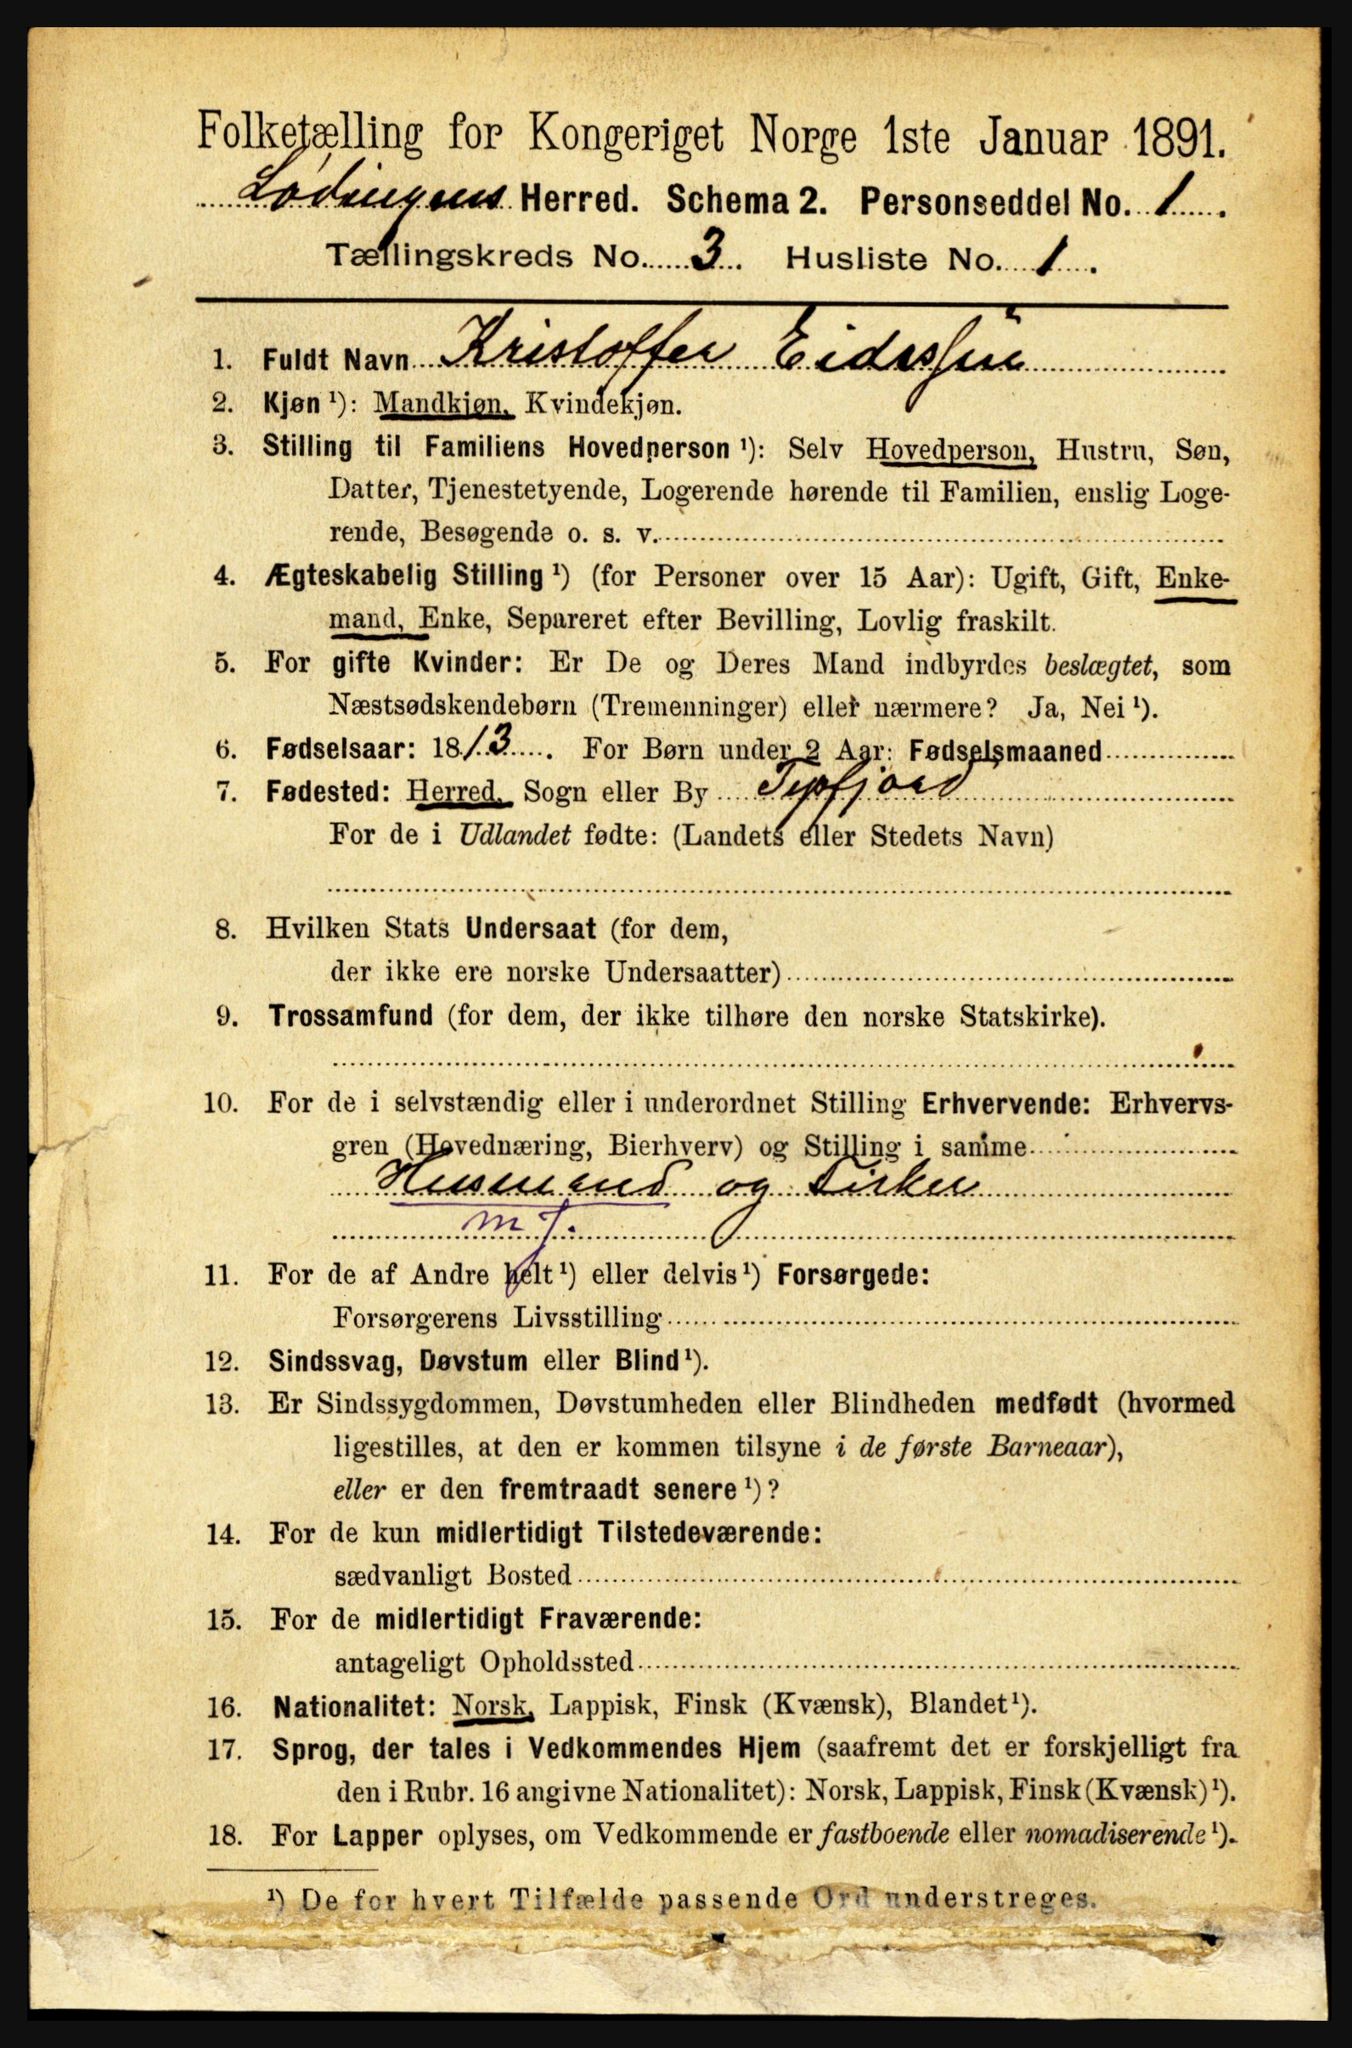 Folketælling for Kongeriget Norge 1ste Januar 1891.
Lødingens Herred. Schema 2. Personseddel No. 1.
Tællingskreds No. 3. Husliste No. 1.
1. Fuldt Navn Kristoffer
2. Kjøn ¹): Mandkjøn, Kvindekjøn.
3. Stilling til Familiens Hovedperson ¹): Selv Hovedperson, Hustru, Søn,
Datter, Tjenestetyende, Logerende hørende til Familien, enslig Loge-
rende, Besøgende o. s. v.
4. Ægteskabelig Stilling ¹) (for Personer over 15 Aar): Ugift, Gift, Enke-
mand, Enke, Separeret efter Bevilling, Lovlig fraskilt.
5. For gifte Kvinder: Er De og Deres Mand indbyrdes beslægtet, som
Næstsødskendebørn (Tremenninger) eller nærmere? Ja, Nei ¹).
6. Fødselsaar: 1813. For Børn under 2 Aar: Fødselsmaaned
7. Fødested: Herred, Sogn eller By Tysfjord
For de i Udlandet fødte: (Landets eller Stedets Navn)
8. Hvilken Stats Undersaat (for dem,
der ikke ere norske Undersaatter)
9. Trossamfund (for dem, der ikke tilhøre den norske Statskirke).
10. For de i selvstændig eller i underordnet Stilling Erhvervende: Erhvervs-
gren (Hovednæring, Bierhverv) og Stilling i samme
Husmand og Fisker
m j.
11. For de af Andre helt ¹) eller delvis ¹) Forsørgede:
Forsørgerens Livsstilling
12. Sindssvag, Døvstum eller Blind ¹).
13. Er Sindssygdommen, Døvstumheden eller Blindheden medfødt (hvormed
ligestilles, at den er kommen tilsyne i de første Barneaar),
eller er den fremtraadt senere ¹)?
14. For de kun midlertidigt Tilstedeværende:
sædvanligt Bosted
15. For de midlertidigt Fraværende:
antageligt Opholdssted
16. Nationalitet: Norsk, Lappisk, Finsk (Kvænsk), Blandet ¹).
17. Sprog, der tales i Vedkommendes Hjem (saafremt det er forskjelligt fra
den i Rubr. 16 angivne Nationalitet): Norsk, Lappisk, Finsk (Kvænsk) ¹).
18. For Lapper oplyses, om Vedkommende er fastboende eller nomadiserende ¹).
¹) De for hvert Tilfælde passende Ord understreges.